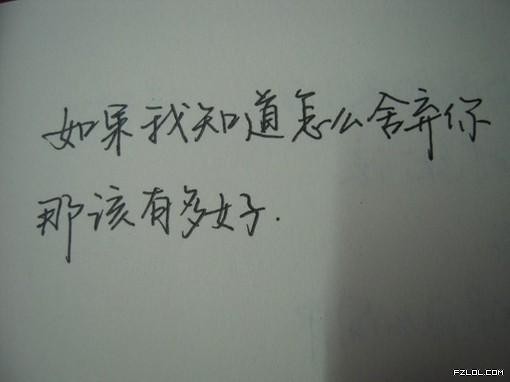 如果我知道怎么舍弃你
那该有多好.
FZLOL.COM